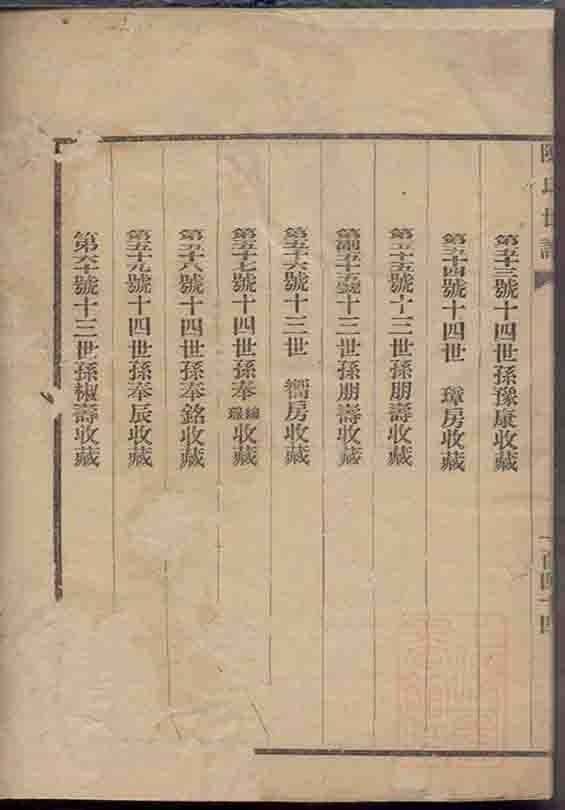 陳氏世譜
第五十三號十四世孫豫康收藏
第五十四號十四世 璋房收藏
第五十五號十三世孫朋壽收藏
第副五十五號十三世孫朋壽收藏
第五十六號十三世 嚮房收藏
第五十七號十四世孫奉線璟收藏
第五十八號十四世孫奉銘收藏
第五十九號十四世孫奉辰收藏
第六十號十三世孫椒壽收藏
一百四十四